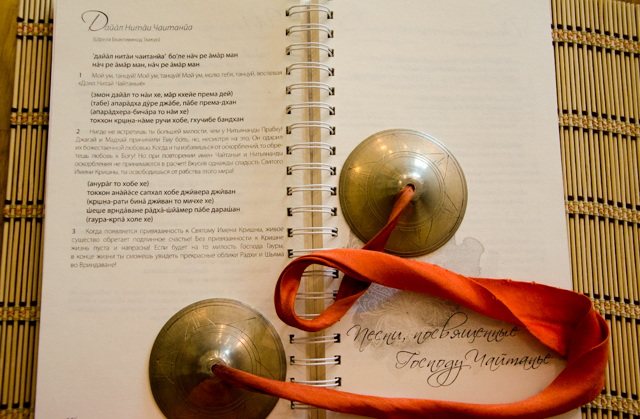 Дайа̄л Нита̄и Чаитанйа
(Шрила Бхактивинод Тхакур)
'дайа̄л нита̄и чаитанйа' бо'ле на̄ч ре а̄ма̄р ман
на̄ч ре а̄ма̄р ман, на̄ч ре а̄ма̄р ман
1 Мой ум, танцуй! Мой ум, танцуй! Мой ум, молю тебя, танцуй, воспевая
«Дойал Нитай Чайтанья!»
(эмон дайа̄л то на̄и хе, ма̄р кхейе према дей)
(табе) апара̄дха дӯре джа̄бе, па̄бе према-дхан
(апара̄дхера-бича̄ра то на̄и хе)
токхон кр̣ш̣н̣а-на̄ме ручи хобе, гхучибе бандхан
2 Нигде не встретишь ты большей милости, чем у Нитьянанды Прабху!
Джагай и Мадхай причинили Ему боль, но, несмотря на это, Он одарил
их божественной любовью. Когда ты избавишься от оскорблений, то обре-
тешь любовь к Богу! Но при повторении имен Чайтаньи и Нитьянанды
оскорбления не принимаются в расчет! Вкусив однажды сладость Святого
Имени Кришны, ты освободишься от рабства этого мира!
(анура̄г то хобе хе)
токхон ана̄йа̄се сапхал хобе джӣвера джӣван
(кр̣ш̣н̣а-рати бина̄ джӣван то мичхе хе)
ш́еш̣е вр̣нда̄ване ра̄дха̄-ш́йа̄мер па̄бе дараш́ан
(гаура-кр̣па̄ холе хе)
3 Когда появляется привязанность к Святому Имени Кришны, живое
существо обретает подлинное счастье! Без привязанности к Кришне
жизнь пуста и напрасна! Если будет на то милость Господа Гауры,
в конце жизни ты сможешь увидеть прекрасные облики Радхи и Шьямы
во Вриндаване!
Песни, посвященные
Господу Чайтанье